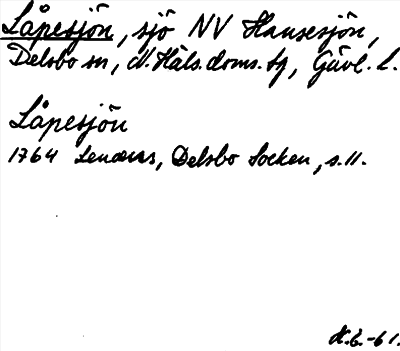 Låpesjön, sjö NV Hansesjön,
Delsbo sn, N. Häls. doms. tg, Gävl. l.
Låpesjön
1764 Lenæus, Delsbo Socken, s. 11.
H.E.-61.